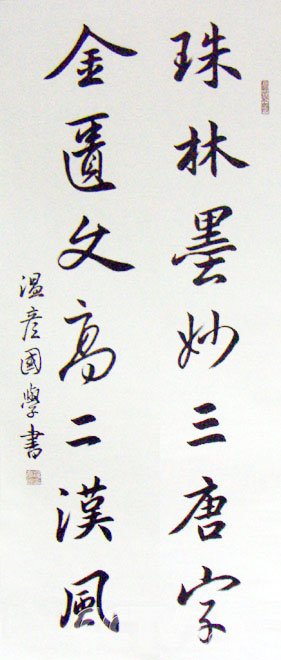 珠林墨妙三唐字
金匱文高二漢風
溫彦國學書